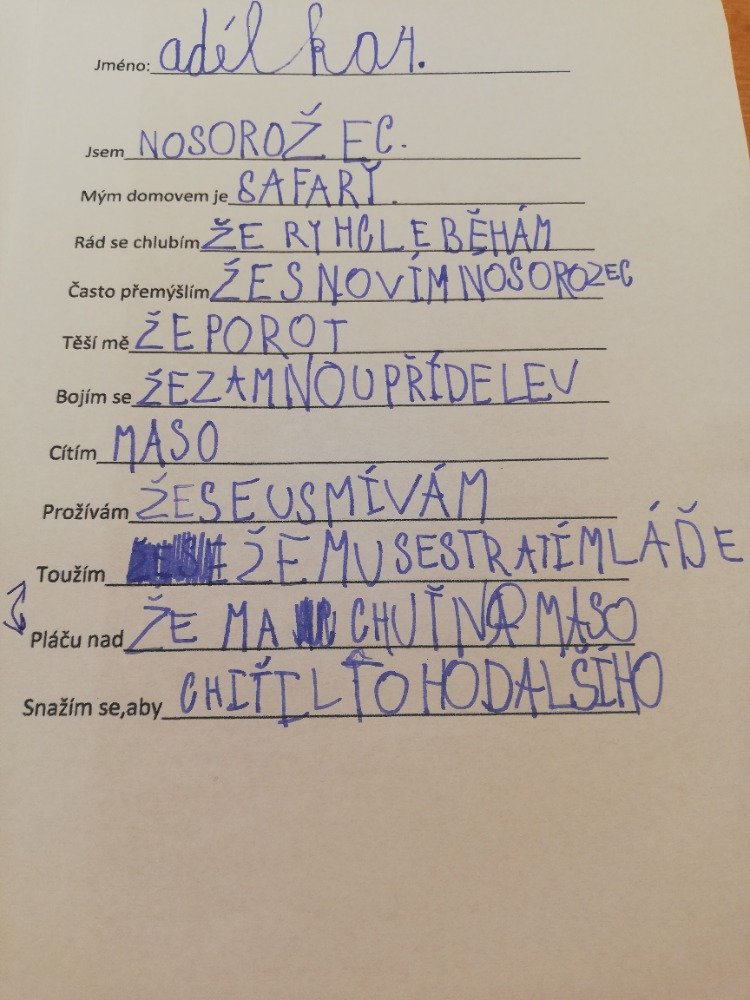 Jméno: adélka H.
Jsem NOSOROŽEC.
Mým domovem je SAFARÝ.
Rád se chlubím ŽE RYHCLE BĚHÁM
Často přemýšlím ŽE S NOVÍM NOSOROZEC
Těší mě ŽE POROT
Bojím se ŽE ZAMNOU PŘÍDE LEV
Cítím MASO
Prožívám ŽE SE USMÍVÁM
Toužím ŽE MU SE STRATÍ MLÁĎE
Pláču nad ŽE MA CHUŤ NA MASO
Snažím se,aby CHIŤIL ŤOHO DALŠÍHO